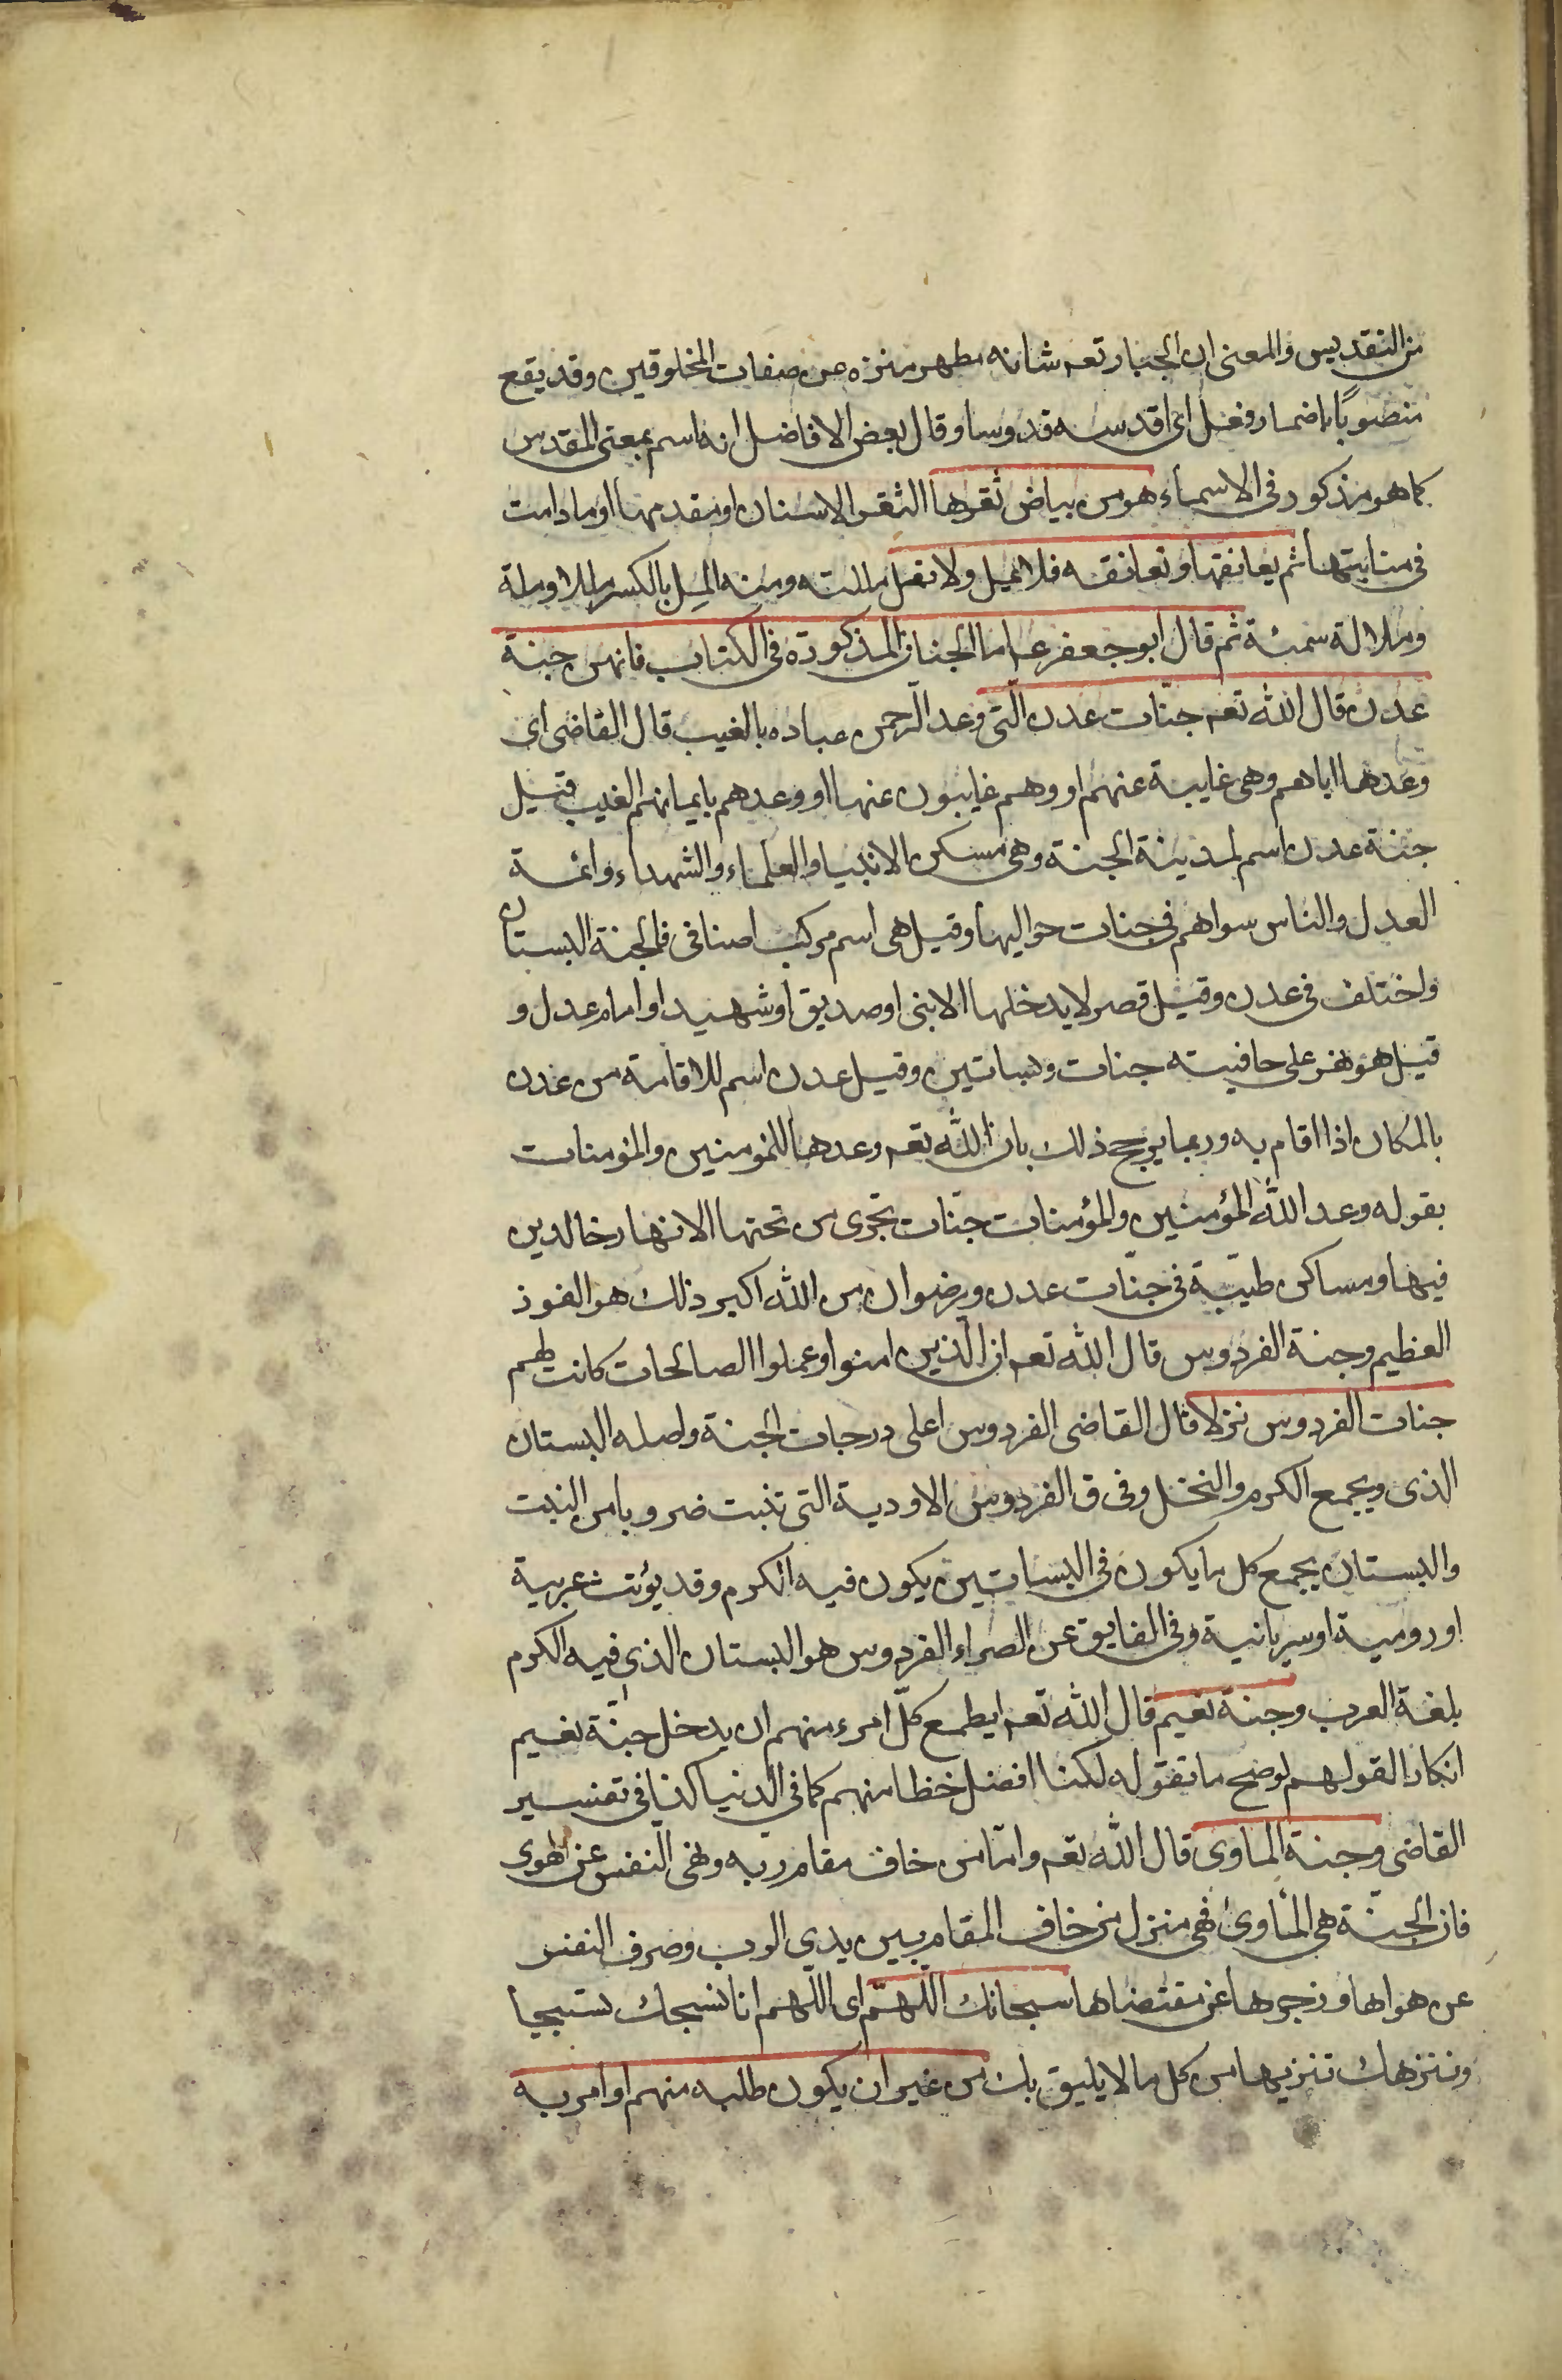 من التقديس والمعنى ان الجبار تعه شانه مطهر منزه عن صفات المخلوقين وقد يقع
منصوبًا باضمار فعل اى اقدسه قدوسا وقال بعض الافاضل انه اسم بمعنى المقدس
كما هو مذكور فى الاسماء هو من بياض ثغرها الثغر الاسنان او مقدمها او ما دامت
فى منابتها ثم يعانقها وتعانقه فلا تمل ولا تمل مللته ومنه المل بالكسر مللا وملة
وملالة سمئة ثم قال ابو جعفر عه اما الجنان المذكورة فى الكتاب فانهن جنة
عدن قال الله تعه جنّات عدن الّتى وعد الرّحمن عباده بالغيب قال القاضى اى
وعدها اياهم وهى غايبة عنهم او وهم غايبون عنها او وعدهم بايمانهم الغيب قيل
جنة عدن اسم لمدينة الجنة وهى مسكن الانبيا والعلماء والشهداء وائمة
العدل والناس سواهم فى جنات حواليها وقيل هى اسم مركب اضافى فالجنة البستان
واختلف فى عدن وقيل قصر لا يدخلها الا نبى او صديق او شهيد او امام عدل و
قيل هو نهر على حافيته جنات وبساتين وقيل عدن اسم للاقامة من عدن
بالمكان اذا اقام به وربما يرجح ذلك بان الله تعه وعدها للمؤمنين والمؤمنات
بقوله وعد الله المؤمنين والمؤمنات جنّات تجرى من تحتها الانهار خالدين
فيها ومساكن طيبّة فى جنّات عدن ورضوان من الله اكبر ذلك هو الفوز
العظيم وجنة الفردوس قال الله تعه ان الّذين امنوا وعملوا الصالحات كانت لهم
جنات الفردوس نزلا قال القاضى الفردوس اعلى درجات الجنة واصله البستان
الذى ويجمع الكرم والنخل وفى ق الفردوس الاودية التى تنبت ضروبا من النبت
والبستان يجمع كل ما يكون فى البساتين يكون فيه الكرم وقد يؤنث عربية
او رومية او سريانية وفى الفايق عن الصراء الفردوس هو البستان الذى فيه الكرم
بلغة العرب وجنة نعيم قال الله تعه ايطمع كلّ امرء منهم ان يدخل جنّة نعيم
انكارا لقولهم لو صح ما تقوله لكنا افضل حظا منهم كما فى الدنيا كذا فى تفسير
القاضى وجنة الماوى قال الله تعه وامّا من خاف مقام ربه ونهى النفس عن الهوى
فان الجنّة هى المأوى فهى منزل من خاف المقام بين يدي الرب وصرف النفس
عن هواها وزجرها عن مقتضاها سبحانك اللّهمّ اى اللّهم انا نسبحك تسبيحا
وننزهك تنزيها من كل ما لا يليق بك من غير ان يكون طلبه منهم او امر به